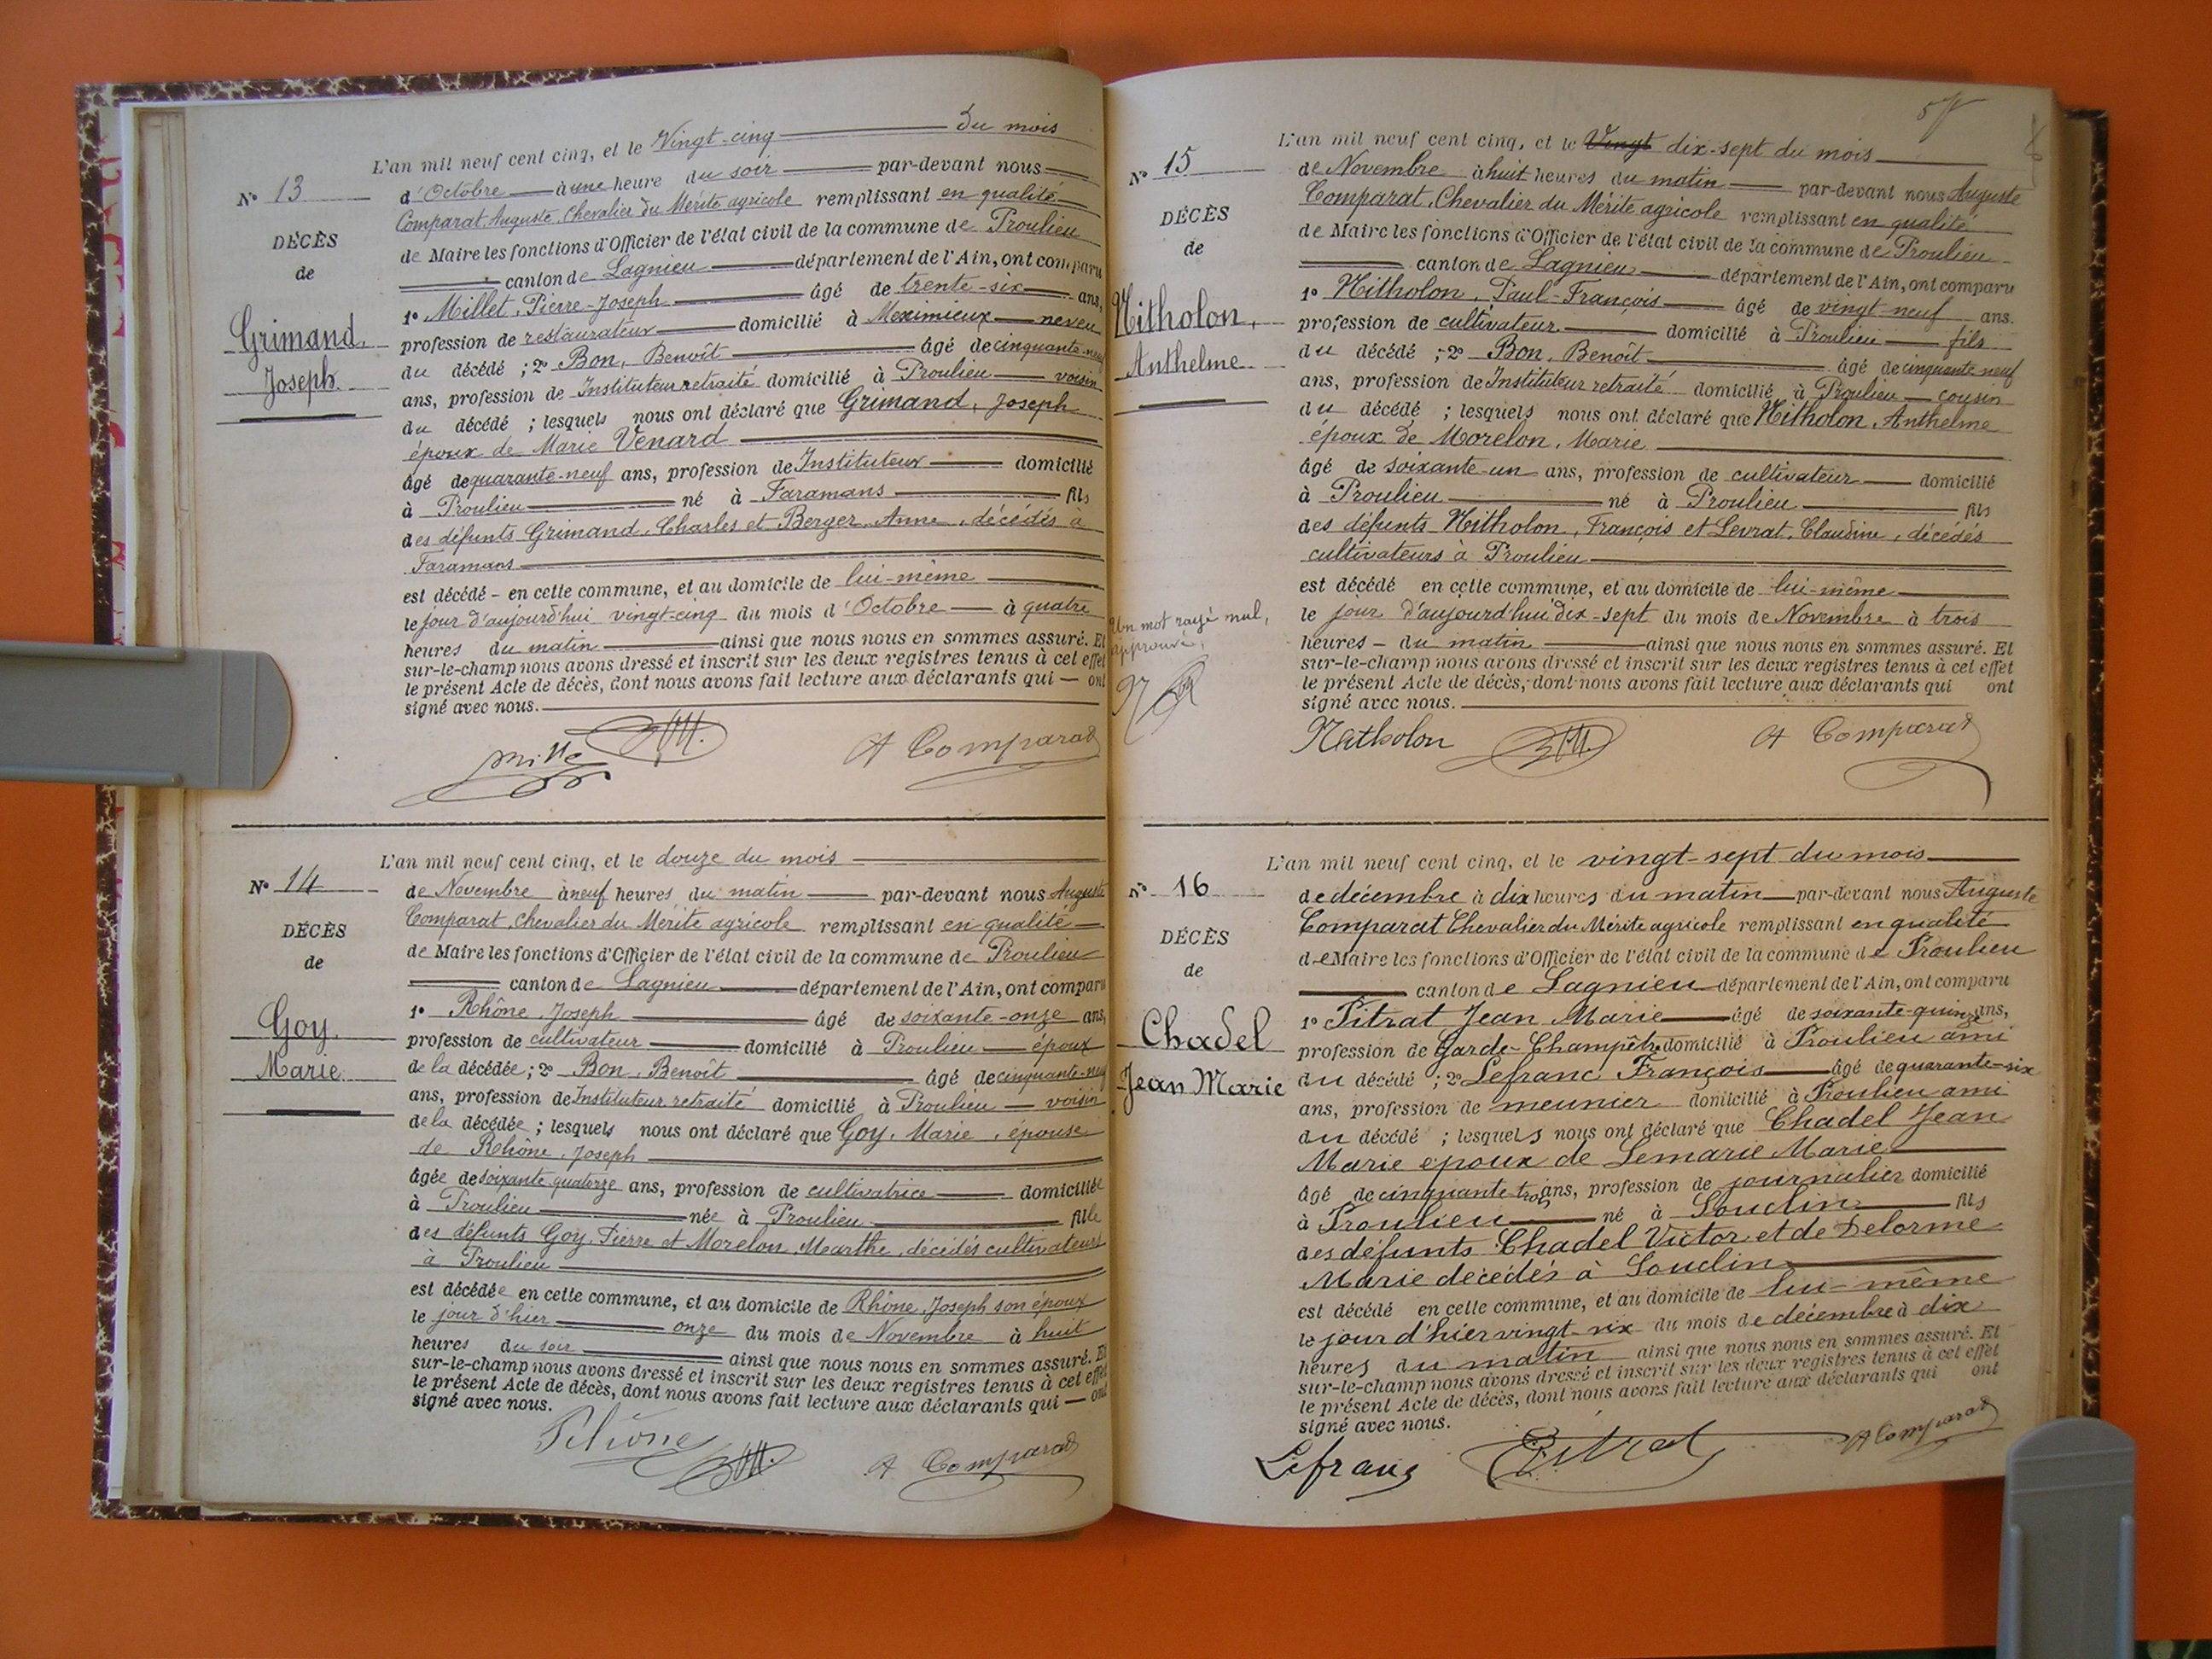 L'an mil neuf cent cinq, et le Vingt-cinq du mois
N° 13
d'Octobre à une heure du soir par-devant nous
Comparat, Auguste, Chevalier du Mérite agricole remplissant en qualité
DÉCÈS
de Maire les fonctions d'Officier de l'état civil de la commune de Proulieu
de
canton de Lagnieu département de l'Ain, ont comparu
1° Millet, Pierre-Joseph âgé de trente-six ans,
Grimand,
profession de restaurateur domicilié à Meximieux neveu
du décédé ; 2° Bon, Benoît âgé de cinquante-neuf
Joseph
ans, profession de Instituteur retraité domicilié à Proulieu voisin
du décédé ; lesquels nous ont déclaré que Grimand, Joseph
époux de Marie Venard
âgé de quarante-neuf ans, profession de Instituteur domicilié
à Proulieu né à Faramans fils
des défunts Grimand, Charles et Berger, Anne, décédés à
Faramans
est décédé en cette commune, et au domicile de lui-même
le jour d'aujourd'hui vingt-cinq du mois d'Octobre à quatre
heures du matin ainsi que nous nous en sommes assuré. Et
sur-le-champ nous avons dressé et inscrit sur les deux registres tenus à cet effet
le présent Acte de décès, dont nous avons fait lecture aux déclarants qui ont
signé avec nous.
A Comparat
L'an mil neuf cent cinq, et le douze du mois
N° 14
de Novembre à neuf heures du matin par-devant nous Auguste
Comparat, Chevalier du Mérite agricole remplissant en qualité
DÉCÈS
de Maire les fonctions d'Officier de l'état civil de la commune de Proulieu
de
canton de Lagnieu département de l'Ain, ont comparu
1° Rhône, Joseph âgé de soixante-onze ans,
Goy,
profession de cultivateur domicilié à Proulieu époux
Marie
de la décédée ; 2° Bon, Benoît âgé de cinquante-neuf
ans, profession de Instituteur retraité domicilié à Proulieu voisin
de la décédée ; lesquels nous ont déclaré que Goy, Marie, épouse
de Rhône, Joseph
âgée de soixante quatorze ans, profession de cultivatrice domiciliée
à Proulieu née à Proulieu fille
des défunts Goy, Pierre et Morelon, Marthe, décédés cultivateurs
à Proulieu
est décédée en cette commune, et au domicile de Rhône, Joseph son époux
le jour d'hier onze du mois de Novembre à huit
heures du soir ainsi que nous nous en sommes assuré. Et
sur-le-champ nous avons dressé et inscrit sur les deux registres tenus à cet effet
le présent Acte de décès, dont nous avons fait lecture aux déclarants qui ont
signé avec nous.
Rhône A Comparat
L'an mil neuf cent cinq, et le Vingt dix-sept du mois
N° 15
de Novembre à huit heures du matin par-devant nous Auguste
Comparat, Chevalier du Mérite agricole remplissant en qualité
DÉCÈS
de Maire les fonctions d'Officier de l'état civil de la commune de Proulieu
de
canton de Lagnieu département de l'Ain, ont comparu
1° Hitholon, Paul-François âgé de vingt-neuf ans.
Hitholon,
profession de cultivateur domicilié à Proulieu fils
du décédé ; 2° Bon, Benoît âgé de cinquante neuf
Anthelme
ans, profession de Instituteur retraité domicilié à Proulieu cousin
du décédé ; lesquels nous ont déclaré que Hitholon, Anthelme
époux de Morelon, Marie
âgé de soixante-un ans, profession de cultivateur domicilié
à Proulieu né à Proulieu fils
des défunts Hitholon, François et Levrat, Claudine, décédés
cultivateurs à Proulieu
est décédé en cette commune, et au domicile de lui-même
le jour d'aujourd'hui dix-sept du mois de Novembre à trois
Un mot rayé nul,
approuvé,
heures du matin ainsi que nous nous en sommes assuré. Et
sur-le-champ nous avons dressé et inscrit sur les deux registres tenus à cet effet
le présent Acte de décès, dont nous avons fait lecture aux déclarants qui ont
signé avec nous.
Hitholon A Comparat
L'an mil neuf cent cinq, et le vingt-sept du mois
N° 16
de décembre à dix heures du matin par-devant nous Auguste
Comparat Chevalier du Mérite agricole remplissant en qualité
DÉCÈS
de Maire les fonctions d'Officier de l'état civil de la commune de Proulieu
de
canton de Lagnieu département de l'Ain, ont comparu
1° Pitrat Jean Marie âgé de soixante-quinze ans,
Chadel
profession de Garde-Champêtre domicilié à Proulieu ami
Jean Marie
du décédé ; 2° Lefranc François âgé de quarante-six
ans, profession de meunier domicilié à Proulieu ami
du décédé ; lesquels nous ont déclaré que Chadel Jean
Marie epoux de Lemarie Marie
âgé de cinquante-trois ans, profession de journalier domicilié
à Proulieu né à Souclin fils
des défunts Chadel Victor et de Delorme
Marie décédés à Souclin
est décédé en cette commune, et au domicile de lui-même
le jour d'hier vingt-six du mois de décembre à dix
heures du matin ainsi que nous nous en sommes assuré. Et
sur-le-champ nous avons dressé et inscrit sur les deux registres tenus à cet effet
le présent Acte de décès, dont nous avons fait lecture aux déclarants qui ont
signé avec nous.
Lefranc Pitrat A Comparat